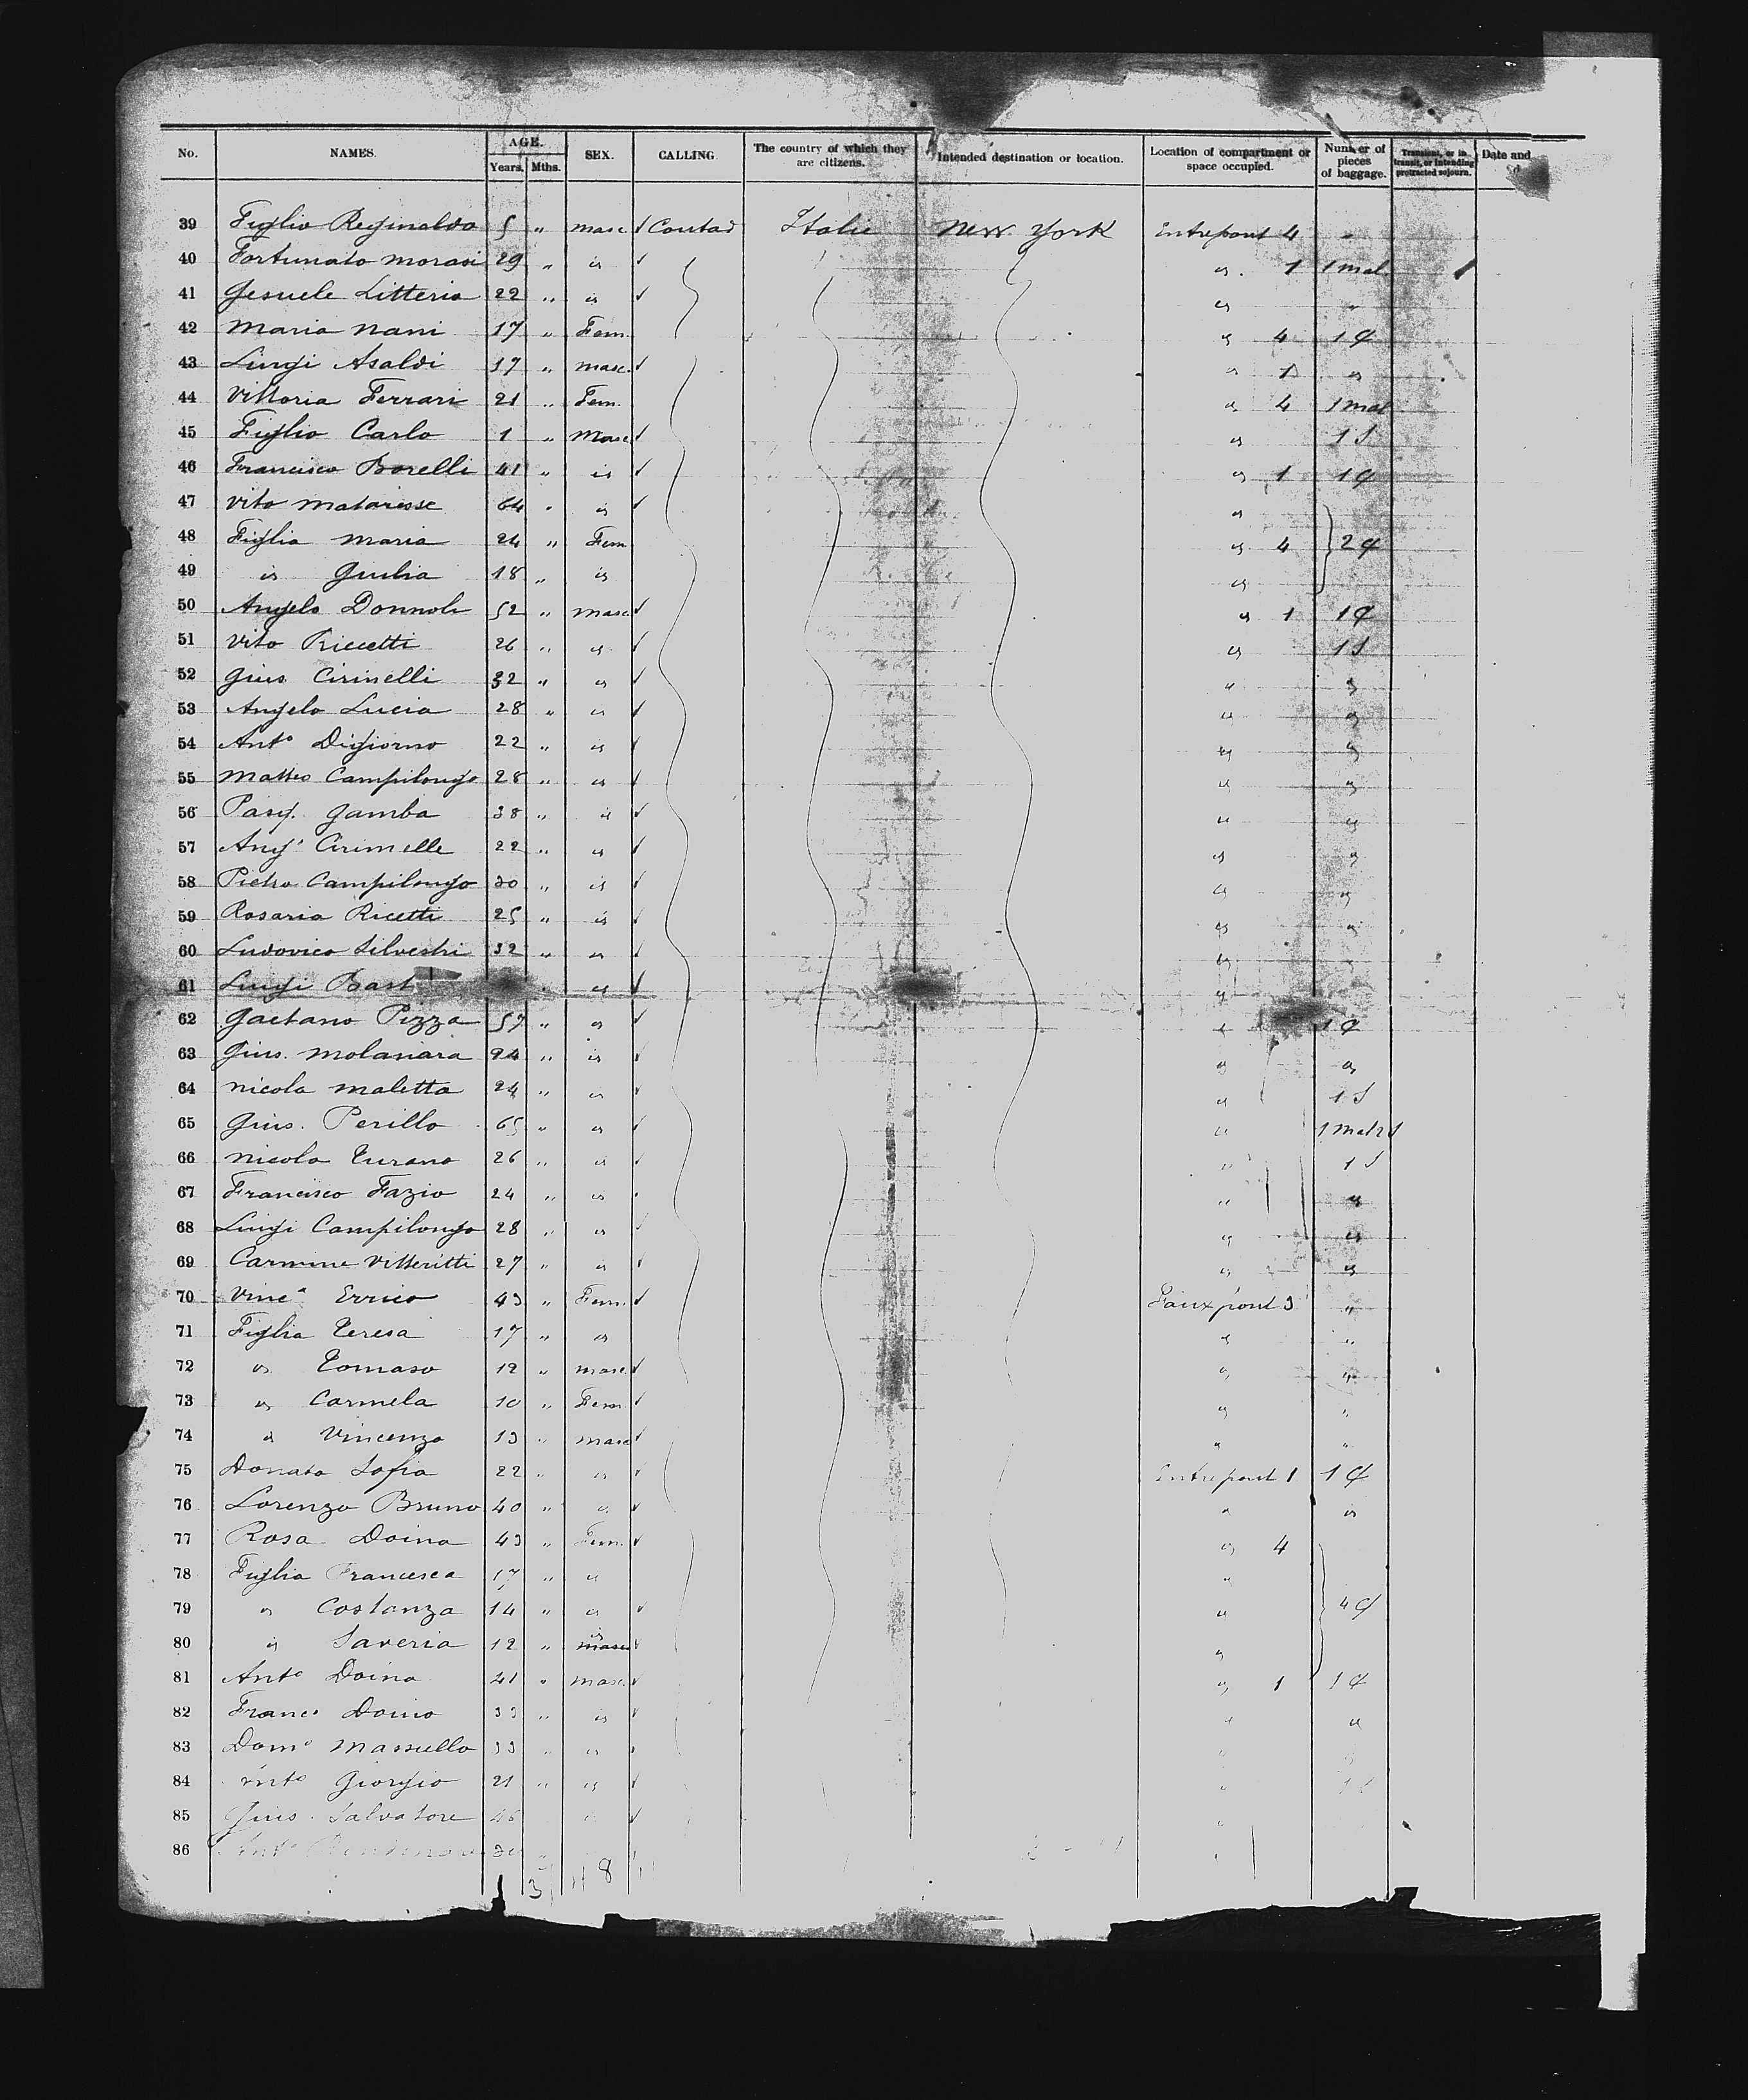 No. NAMES. AGE. Years. Mths. SEX. CALLING. The country of which they are citizens. Intended destination or location. Location of compartment or space occupied. Number of pieces of baggage. Transient, or in transit, or intending protracted sojourn. Date and
39 Figlio Reginaldo 5 " masc Contad Italie New York Entrepont 4 "
40 Fortunato Morasi 29 " id id 1 1 mal
41 Gesuele Litterio 22 " id id "
42 Maria Nani 17 " Fem. id 4 1 C
43 Luigi Asaldi 17 " masc. id 1 id
44 Vittoria Ferrari 21 " Fem. id 4 1 mal
45 Figlio Carlo 1 " Masc id 1 S
46 Francisco Borelli 41 " id id 1 1 C
47 Vito Mataresse 64 " id id
48 Figlia Maria 24 " Fem id 4 2 C
49 id Giulia 18 " id id
50 Angelo Donnoli 52 " masc id 1 1 C
51 Vito Riccetti 26 " id id 1 S
52 Gius Cirinelli 32 " id id id
53 Angelo Lucia 28 " id id id
54 Anto Digiorno 22 " id id id
55 Matteo Campilongo 28 " id id id
56 Pasq. Gamba 38 " id id id
57 Ang' Cirimelle 22 " id id id
58 Pietro Campilongo 30 " id id id
59 Rosaria Ricetti 25 " id id id
60 Ludovico Silvestri 32 " id id
61 Luigi id id
62 Gaetano Pizza 57 " id id 1 C
63 Gius. Molanara 24 " id id id
64 Nicola Maletta 24 " id id 1 S
65 Gius. Perillo 65 " id id 1 mal
66 Nicola Turano 26 " id " 1 S
67 Francisco Fazio 24 " id " id
68 Luigi Campilongo 28 " id id id
69 Carmine Vitteritti 27 " id id id
70 Vinca Errico 43 " Fem. Fauxpont 3 "
71 Figlia Teresa 17 " id id "
72 id Tomaso 12 " masc id "
73 id Carmela 10 " Fem id "
74 id Vincenzo 13 " masc id "
75 Donato Sofia 22 " id Entrepont 1 1 C
76 Lorenzo Bruno 40 " id id id
77 Rosa Doina 43 " Fem. id 4
78 Figlia Francesca 17 " id id
79 id Costanza 14 " id id 4 C
80 id Saveria 12 " id masc id
81 Anto Doino 41 " masc. id 1 1 C
82 Franco Doino 33 " id id id
83 Domo Massullo 33 " id
84 Anto Giorgio 21 " id
85 Gius. Salvatore 46
86 Anto